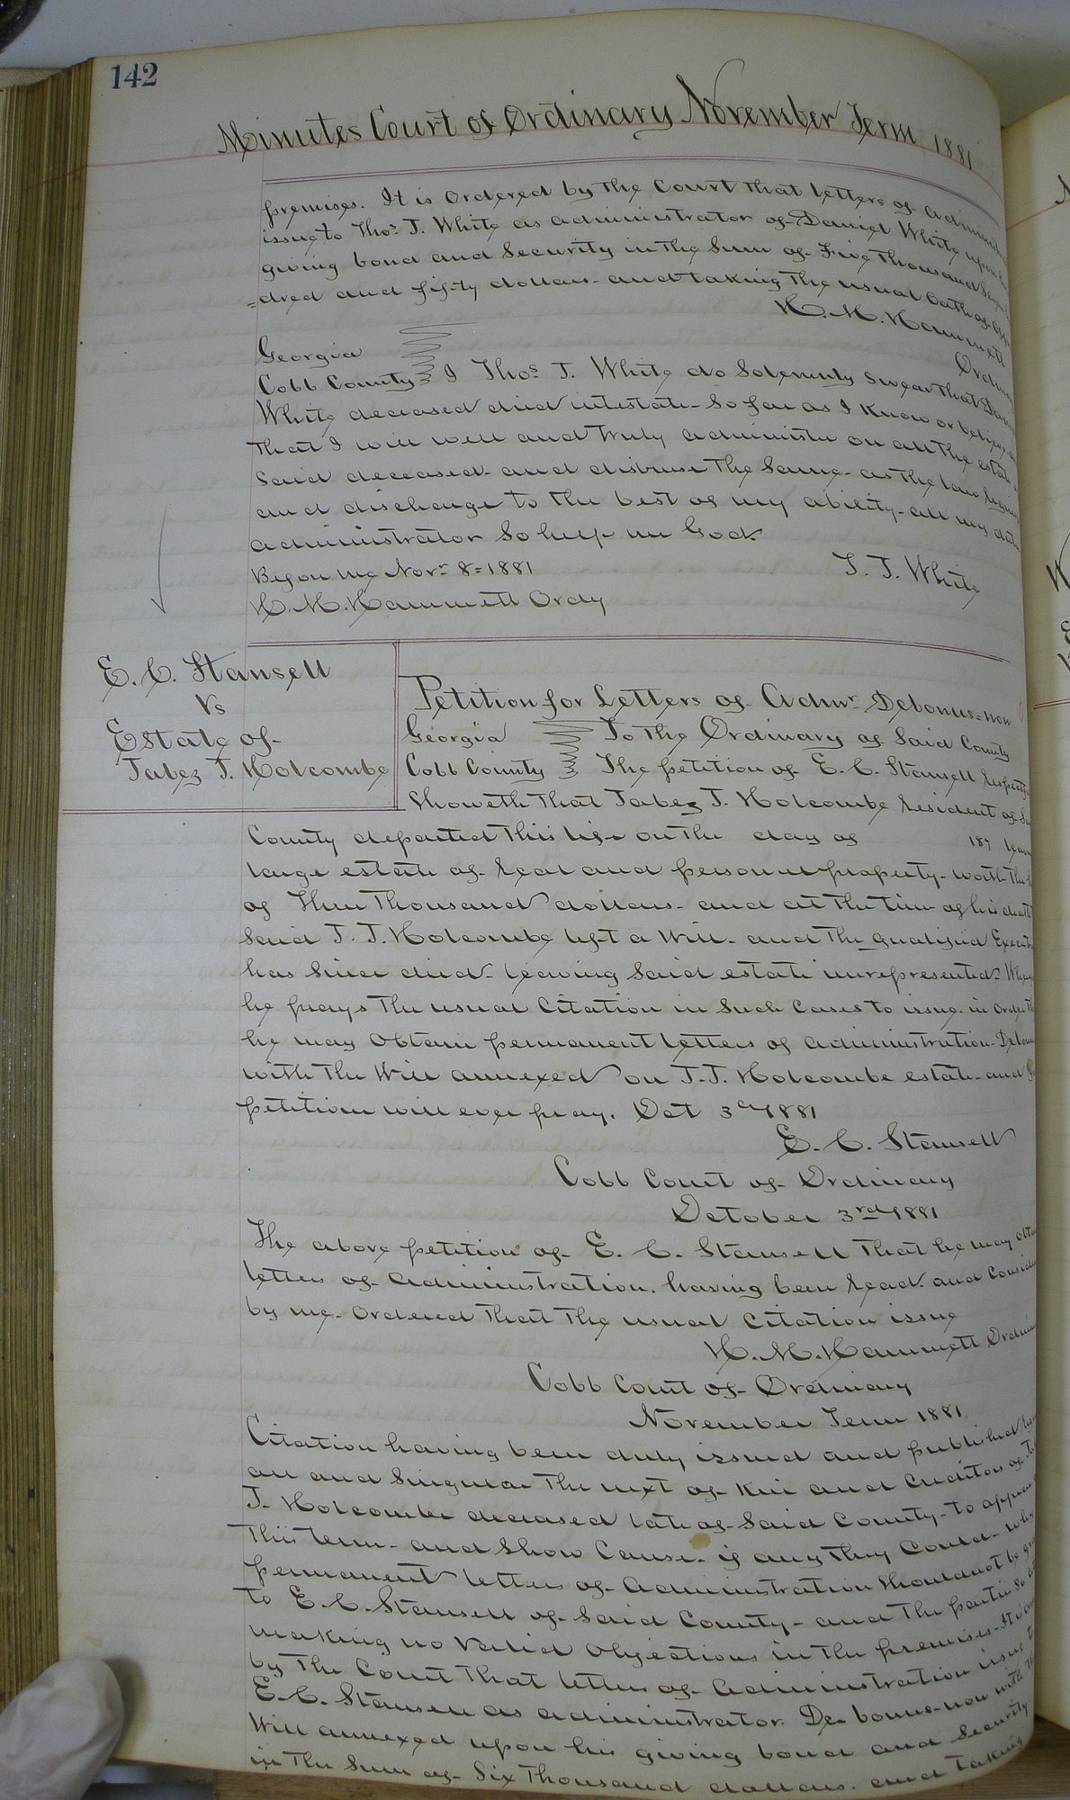 142
Minutes Court of Ordinary November Term 1881
premises. It is ordered by the Court that letters of
issue to Thos. J. White as administrator of Daniel White upon
giving bond and security in the sum of Five Thousand
=dred and fifty dollars and taking the usual oath of
H. M. Hammett
Georgia
Cobb County I Thos. J. White do solemnly swear that
White deceased died intestate so far as I know or believe
that I will well and truly administer on all the estate
said deceased and disburse the same as the law
and discharge to the best of my ability all my
administrator So help me God.
Before me Novr 8=1881 T. J. White
H. M. Hammett Ordy
E. C. Stansell
Vs
Estate of
Jabez J. Holcombe
Petition for Letters of Admr Debonus=non
Georgia To the Ordinary of Said County
Cobb County The petition of E. C. Stansell
Showeth that Jabez J. Holcombe resident of
County departed this life on the day of 187
large estate of real and personal property worth the
of Three Thousand dollars and at the time of his death
said J. J. Holcombe left a Will and the qualified
has since died leaving said estate unrepresented
he prays the usual Citation in such cases to issue in order
he may obtain permanent letters of administration
with the Will annexed on J. J. Holcombe estate and
petition will ever pray. Oct 3rd 1881
E. C. Stansell
Cobb Court of Ordinary
October 3rd 1881
The above petition of E. C. Stansell that he may
letters of administration having been read and
by me ordered that the usual citation issue
H. M. Hammett
Cobb Court of Ordinary
November Term 1881
Citation having been duly issued and published
all and singular the next of Kin and creditors of
J. Holcombe deceased late of said County to appear
this term and show cause if any they could why
permanent letters of administration should not be
to E. C. Stansell of said County and the parties
making no valid objections in the premises
by the Court that letters of administration issue to
E. C. Stansell as administrator De bonus=non with the
Will annexed upon his giving bond and security
in the sum of Six Thousand dollars and taking